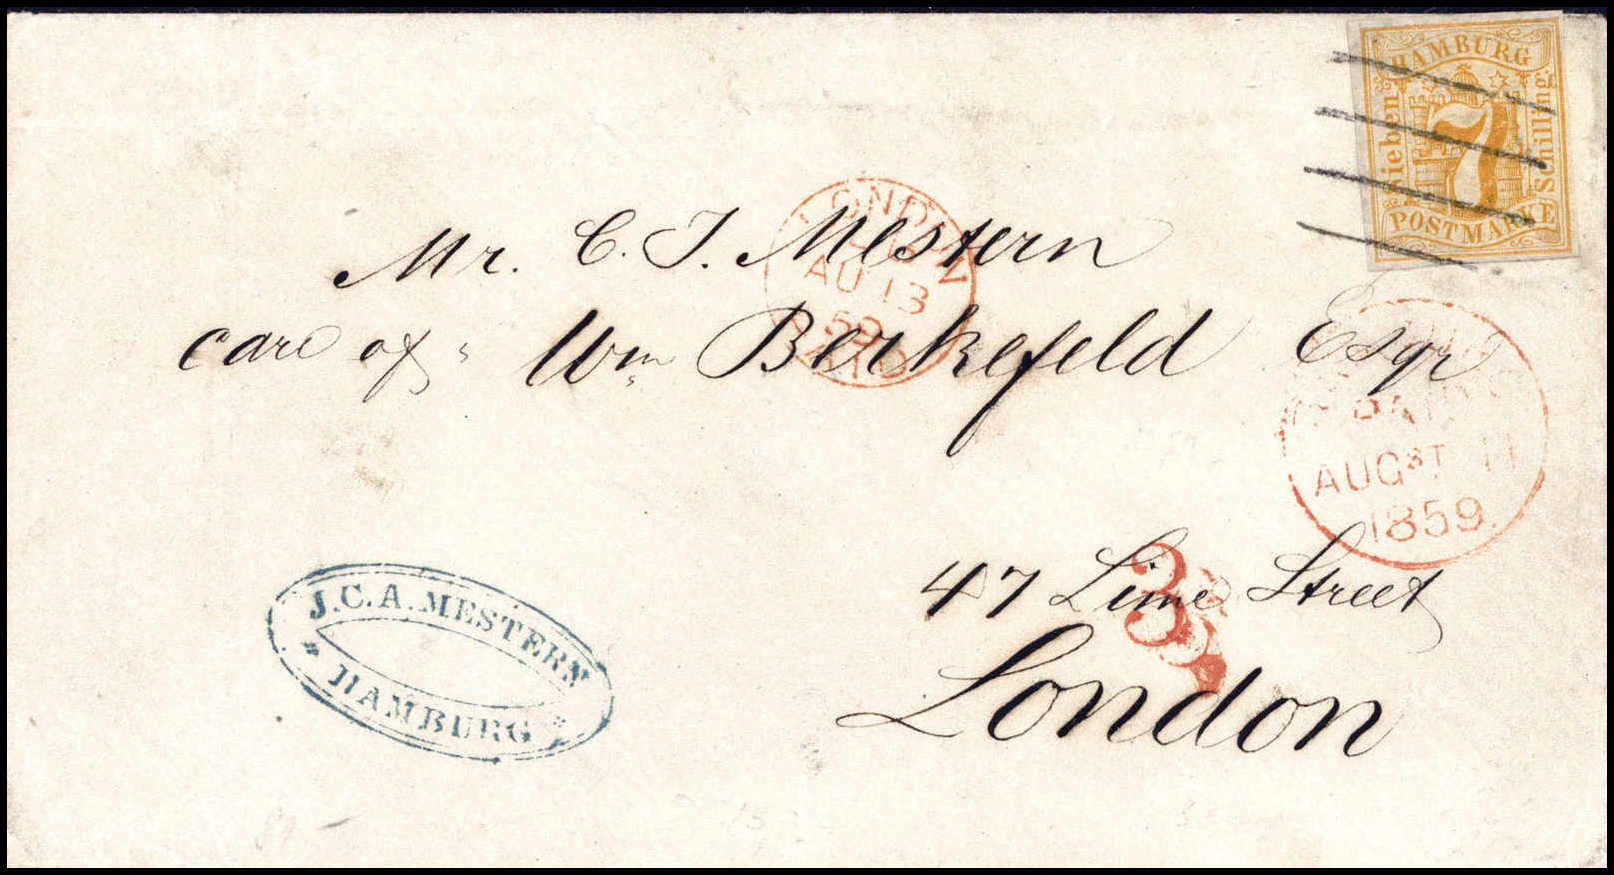 HAMBURG
Sieben
7
Schilling
POSTMARKE
LONDON
AU 13
59
PAID
Mr. C. J. Mestern
care of Wm Berkefeld Esqr
AUGST 11
1859
47 Lime Street
3
London
J.C.A. MESTERN
HAMBURG